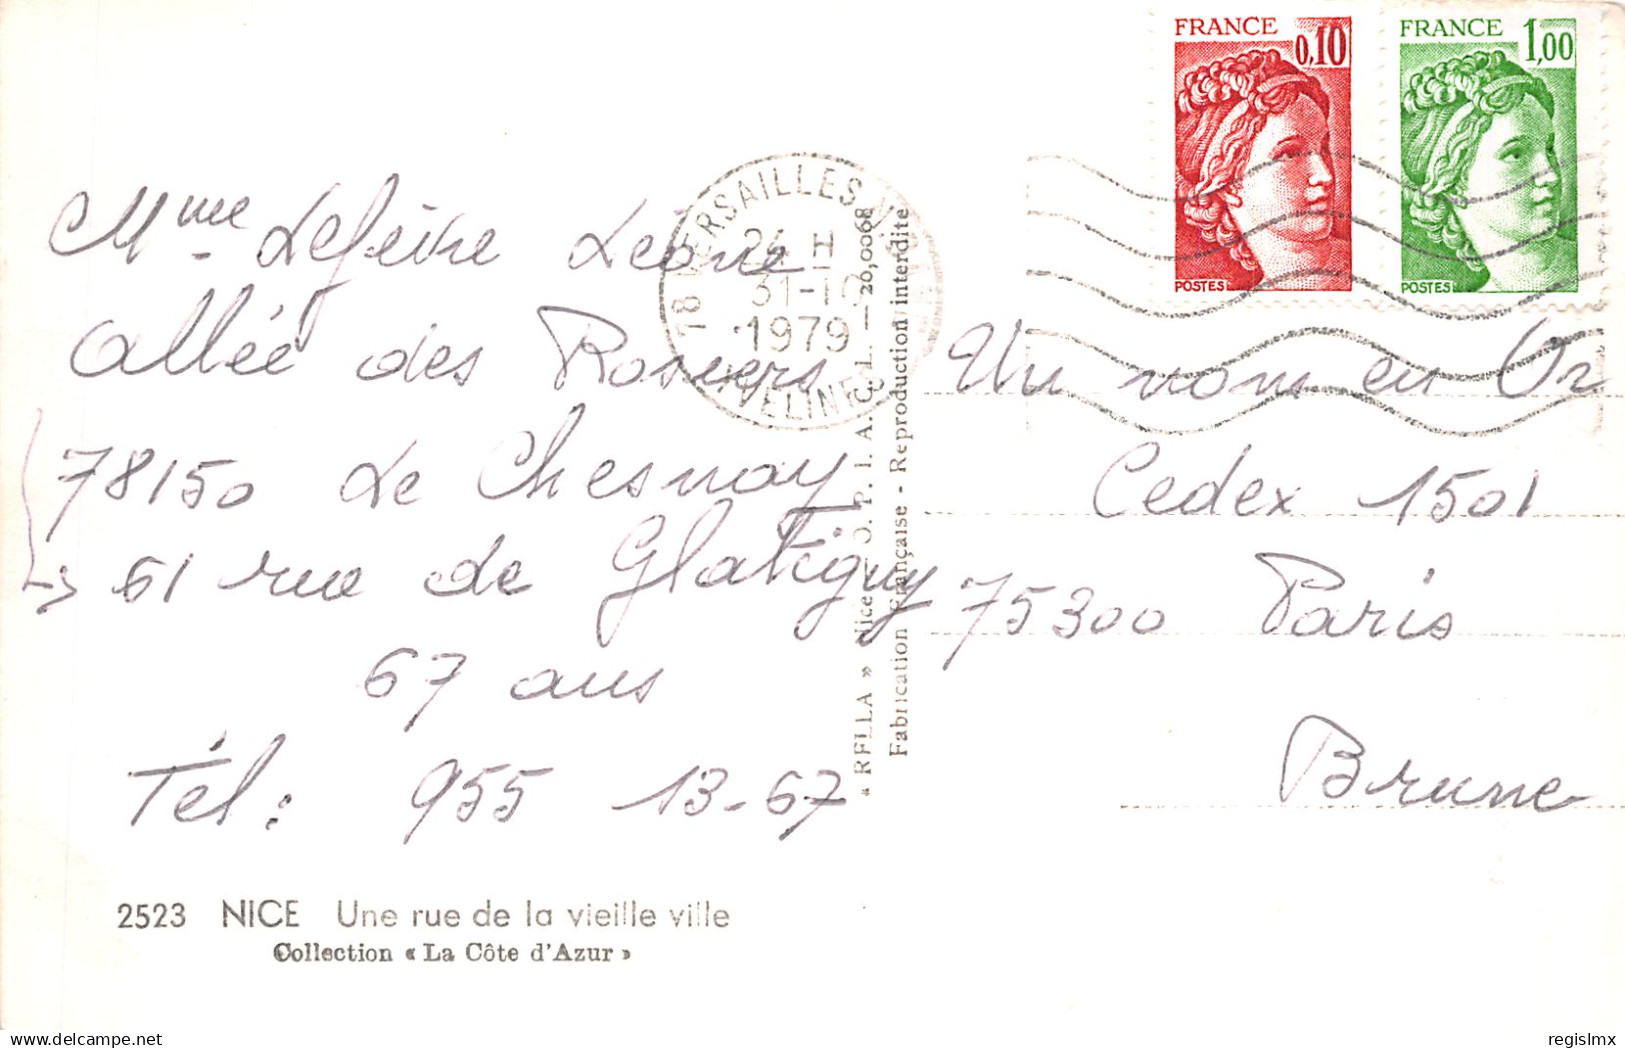 FRANCE 0,10
POSTES
FRANCE 1,00
POSTES
78 VERSAILLES
24 H
31-10
1979
YVELINES
Mme Lefèvre Léone
Allée des Rosiers
78150 Le Chesnay
61 rue de Glatigny
67 ans
Tél: 955 13-67
Un nom en Or
Cedex 1501
75300 Paris
Brune
Nice - O. P. I. A. C. L. - 20,0068
Fabrication Française - Reproduction interdite
2523 NICE Une rue de la vieille ville
Collection « La Côte d'Azur »
regislmx